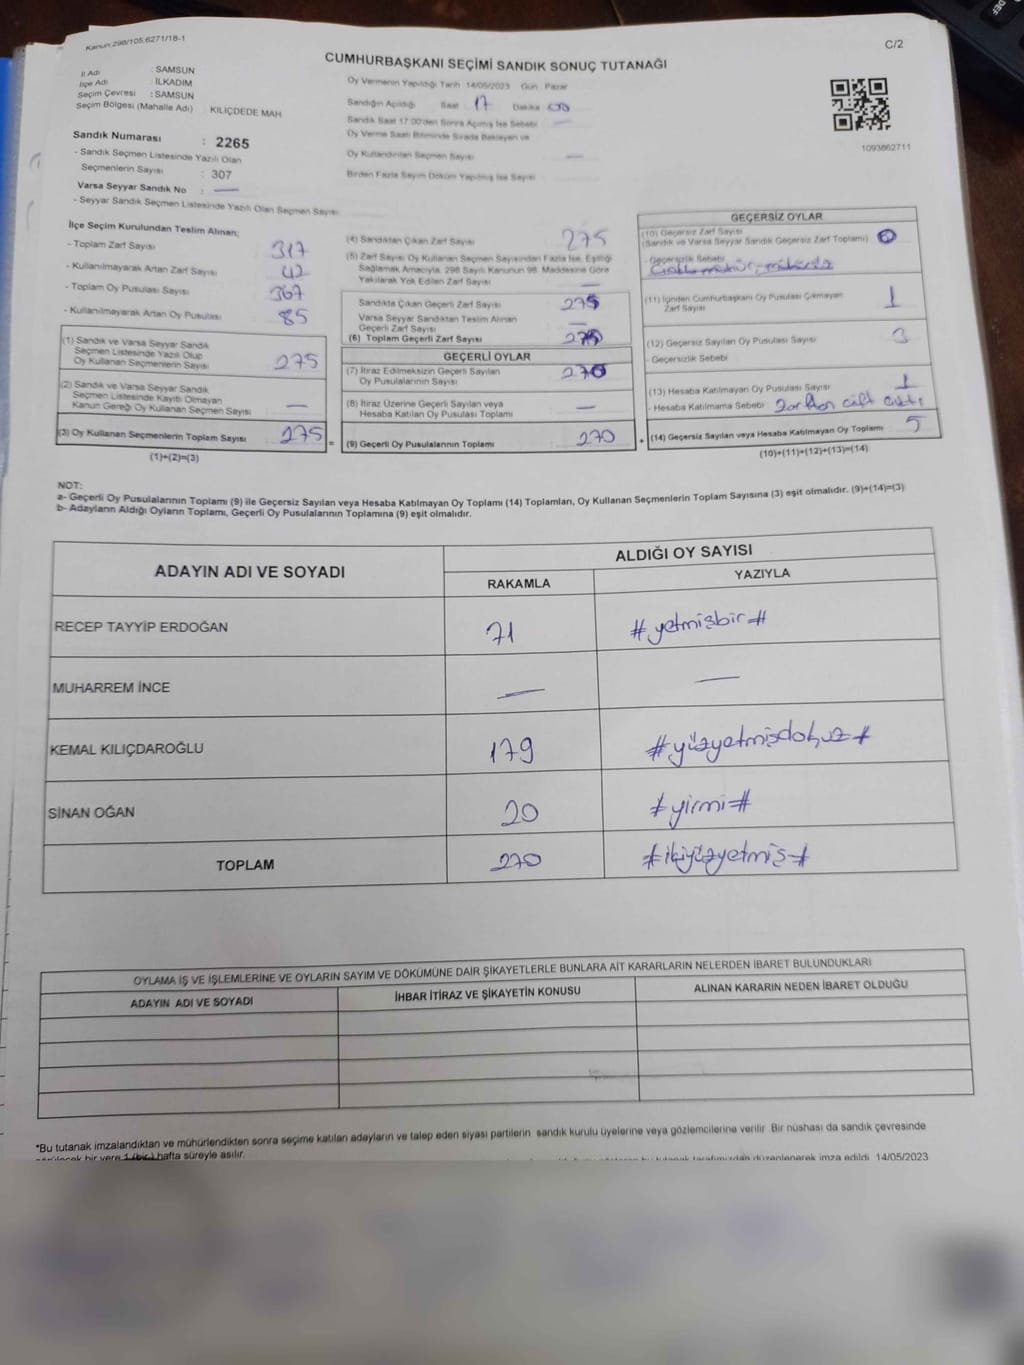 Kanun:298/105,6271/18-1
C/2
CUMHURBAŞKANI SEÇİMİ SANDIK SONUÇ TUTANAĞI
İl Adı : SAMSUN
İlçe Adı : İLKADIM
Seçim Çevresi : SAMSUN
Seçim Bölgesi (Mahalle Adı) : KILIÇDEDE MAH
Sandık Numarası : 2265
- Sandık Seçmen Listesinde Yazılı Olan
Seçmenlerin Sayısı : 307
Varsa Seyyar Sandık No : —
- Seyyar Sandık Seçmen Listesinde Yazılı Olan Seçmen Sayısı
Oy Vermenin Yapıldığı Tarih 14/05/2023 Gün : Pazar
Sandığın Açıldığı Saat 17 Dakika 00
Sandık Saat 17:00'den Sonra Açılmış İse Sebebi —
Oy Verme Saati Bitiminde Sırada Bekleyen ve
Oy Kullandırılan Seçmen Sayısı —
Birden Fazla Sayım Döküm Yapılmış İse Sayısı
1093862711
İlçe Seçim Kurulundan Teslim Alınan;
- Toplam Zarf Sayısı 317
- Kullanılmayarak Artan Zarf Sayısı 42
- Toplam Oy Pusulası Sayısı 367
- Kullanılmayarak Artan Oy Pusulası 85
(1) Sandık ve Varsa Seyyar Sandık
Seçmen Listesinde Yazılı Olup
Oy Kullanan Seçmenlerin Sayısı 275
(2) Sandık ve Varsa Seyyar Sandık
Seçmen Listesinde Kayıtlı Olmayan
Kanun Gereği Oy Kullanan Seçmen Sayısı —
(3) Oy Kullanan Seçmenlerin Toplam Sayısı 275 =
(1)+(2)=(3)
(4) Sandıktan Çıkan Zarf Sayısı 275
(5) Zarf Sayısı Oy Kullanan Seçmen Sayısından Fazla İse, Eşitliği
Sağlamak Amacıyla, 298 Sayılı Kanunun 98. Maddesine Göre
Yakılarak Yok Edilen Zarf Sayısı —
Sandıkta Çıkan Geçerli Zarf Sayısı 275
Varsa Seyyar Sandıktan Teslim Alınan
Geçerli Zarf Sayısı —
(6) Toplam Geçerli Zarf Sayısı 275
GEÇERLİ OYLAR
(7) İtiraz Edilmeksizin Geçerli Sayılan
Oy Pusulalarının Sayısı 270
(8) İtiraz Üzerine Geçerli Sayılan veya
Hesaba Katılan Oy Pusulası Toplamı —
(9) Geçerli Oy Pusulalarının Toplamı 270 +
GEÇERSİZ OYLAR
(10) Geçersiz Zarf Sayısı
(Sandık ve Varsa Seyyar Sandık Geçersiz Zarf Toplamı)
- Geçersizlik Sebebi
(11) İçinden Cumhurbaşkanı Oy Pusulası Çıkmayan
Zarf Sayısı 1
(12) Geçersiz Sayılan Oy Pusulası Sayısı 3
- Geçersizlik Sebebi
(13) Hesaba Katılmayan Oy Pusulası Sayısı 1
- Hesaba Katılmama Sebebi Zarftan çift çıktı
(14) Geçersiz Sayılan veya Hesaba Katılmayan Oy Toplamı 5
(10)+(11)+(12)+(13)=(14)
NOT:
a- Geçerli Oy Pusulalarının Toplamı (9) ile Geçersiz Sayılan veya Hesaba Katılmayan Oy Toplamı (14) Toplamları, Oy Kullanan Seçmenlerin Toplam Sayısına (3) eşit olmalıdır. (9)+(14)=(3)
b- Adayların Aldığı Oyların Toplamı, Geçerli Oy Pusulalarının Toplamına (9) eşit olmalıdır.
ADAYIN ADI VE SOYADI
ALDIĞI OY SAYISI
RAKAMLA YAZIYLA
RECEP TAYYİP ERDOĞAN 71 #yetmişbir#
MUHARREM İNCE — —
KEMAL KILIÇDAROĞLU 179 #yüzyetmişdokuz#
SİNAN OĞAN 20 #yirmi#
TOPLAM 270 #ikiyüzyetmiş#
OYLAMA İŞ VE İŞLEMLERİNE VE OYLARIN SAYIM VE DÖKÜMÜNE DAİR ŞİKAYETLERLE BUNLARA AİT KARARLARIN NELERDEN İBARET BULUNDUKLARI
ADAYIN ADI VE SOYADI İHBAR İTİRAZ VE ŞİKAYETİN KONUSU ALINAN KARARIN NEDEN İBARET OLDUĞU
*Bu tutanak imzalandıktan ve mühürlendikten sonra seçime katılan adayların ve talep eden siyasi partilerin sandık kurulu üyelerine veya gözlemcilerine verilir. Bir nüshası da sandık çevresinde
görülecek bir yere 1 (bir) hafta süreyle asılır. tarafımızdan düzenlenerek imza edildi. 14/05/2023